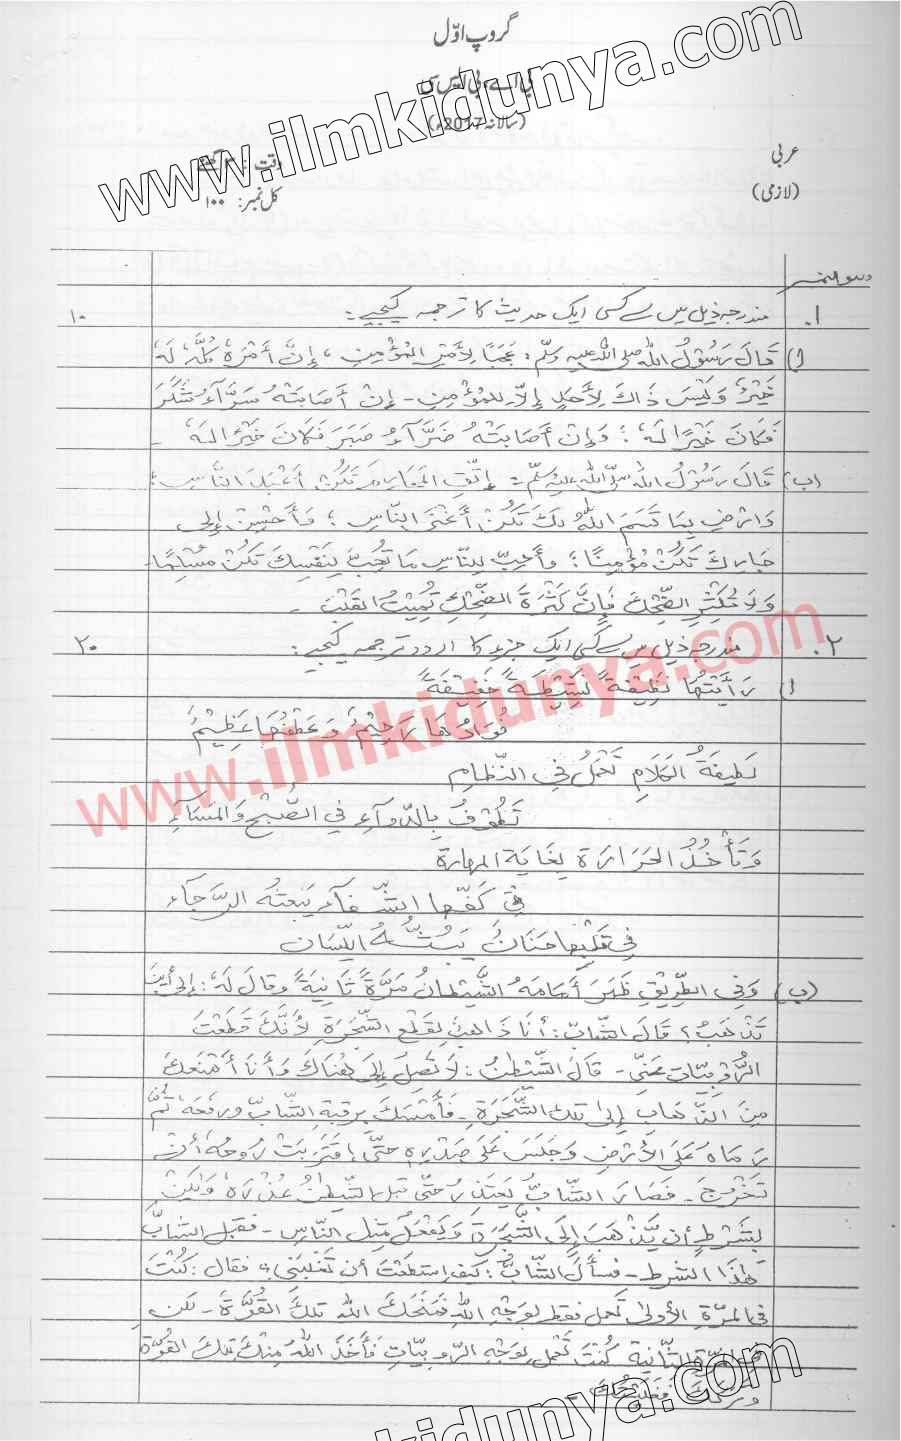 گروپ اوّل
بی اے، بی ایس سی
(سالانہ 2017ء)
عربی
(لازمی)
وقت : ۳ گھنٹے
کل نمبر: ۱۰۰
www.ilmkidunya.com
سوال نمبر
۱. مندرجہ ذیل میں سے کسی ایک حدیث کا ترجمہ کیجیے: ۱۰
(ا) قَالَ رَسُوْلُ اللّٰهِ صلی اللّٰه علیہ وسلّم: عَجَبًا لِأَمْرِ المُؤْمِنِ، إِنَّ أَمْرَهٗ كُلَّهٗ لَهٗ
خَيْرٌ وَلَيْسَ ذَاكَ لِأَحَدٍ إِلَّا لِلمُؤْمِنِ - إِنْ أَصَابَتْهُ سَرَّآءُ شَكَرَ
فَكَانَ خَيْرًا لَهٗ؛ وَإِنْ أَصَابَتْهُ ضَرَّآءُ صَبَرَ فَكَانَ خَيْرًا لَهٗ -
(ب) قَالَ رَسُوْلُ اللّٰهِ صلّی اللّٰه علیہ وسلّم: إِتَّقِ المَحَارِمَ تَكُنْ أَعْبَدَ النَّاسِ؛
وَارْضِ بِمَا قَسَمَ اللّٰهُ لَكَ تَكُنْ أَغْنَى النَّاسِ؛ وَأَحْسِنْ إِلى
جَارِكَ تَكُنْ مُؤْمِنًا؛ وأَحِبَّ لِلنَّاسِ مَا تُحِبُّ لِنَفْسِكَ تَكُنْ مُسْلِمًا-
وَلَا تُكْثِرِ الضِّحْكَ فَإِنَّ كَثْرَةَ الضِّحْكِ تُمِيْتُ القَلْبَ -
۲. مندرجہ ذیل میں سے کسی ایک جزء کا اردو ترجمہ کیجیے: ۲۰
(ا) رَأَيْتُهَا نَظِيْفَةً نَشِيْطَةً خَفِيْفَةً
فُؤَادُهَا رَحِيْمٌ وَعَطْفُهَا عَظِيْمٌ
لَطِيْفَةُ الكَلَامِ تَعْمَلُ فِي النِّظَامِ
تَطُوْفُ بِالدَّوَآءِ فِي الصُّبْحِ وَالمَسَآءِ
وَتَأْخُذُ الحَرَارَة بِغَايَة المهارة
فِي كَفِّهَا الشِّفَآء يَبْعَثهُ الرَّجَآء
فِي قَلْبِهَا حَنَانٌ يَبُثُّهُ اللِّسَان
(ب) وَفِي الطَّرِيْقِ ظَهَرَ أَمَامَهُ الشَّيْطَانُ مَرَّةً ثَانِيَةً وقَالَ لَهٗ: إِلى أَيْنَ
تَذْهَبُ؟ قَالَ الشَّابُّ: أَنَا ذَاهِبٌ لِقَطْعِ الشَّجَرَةِ لِأَنَّكَ قَطَعْتَ
الرُّوْبِيَّاتِ عَنِّي - قَالَ الشَّيْطٰنُ: لَا تَصِلُ إِلَى هُنَاكَ وَأَنَا أَمْنَعُكَ
مِنَ الذَّهَابِ إِلىٰ تِلكَ الشَّجَرَةِ - فَأَمْسَكَ بِرقبةِ الشَّابِّ ورفَعَهٗ ثُمَّ
رَمَاهُ عَلَى الأَرْضِ وَجَلَسَ عَلى صَدْرِهٖ حَتَّى اقْتَرَبَتْ رُوحُهٗ أَنْ
تَخْرُجَ - فَصَارَ الشَّابُّ يَعْتَذِرُ حَتّى قَبِلَ الشَّيْطٰنُ عُذْرَهٗ وَلٰكِنْ
بِشَرْطِ أَن يَّذْهَبَ إِلَى الشَّجَرَةِ وَيَفْعَلَ مِثلَ النَّاسِ - فَقَبِلَ الشابُّ
هٰذَا الشَّرط - فَسأَلَ الشَّابُّ: كَيْفَ اسْتَطَعْتَ أن تَغْلِبَنِي؟ فقال: كُنْتَ
في المرَّةِ الأولىٰ تَعْمل فقط لِوَجْهِ اللّٰهِ فَمَنَحَكَ اللّٰهُ تلكَ القُوَّةَ - لكن
في المرّةِ الثَّانِيَةِ كُنْتَ تَعْمَلُ لِوَجْهِ الرُّوْبِيَّاتِ فَأَخَذَ اللّٰهُ مِنْكَ تِلكَ القُوَّةَ
وتركك فَغَلَبْتُكَ -
www.ilmkidunya.com
kidunya.com